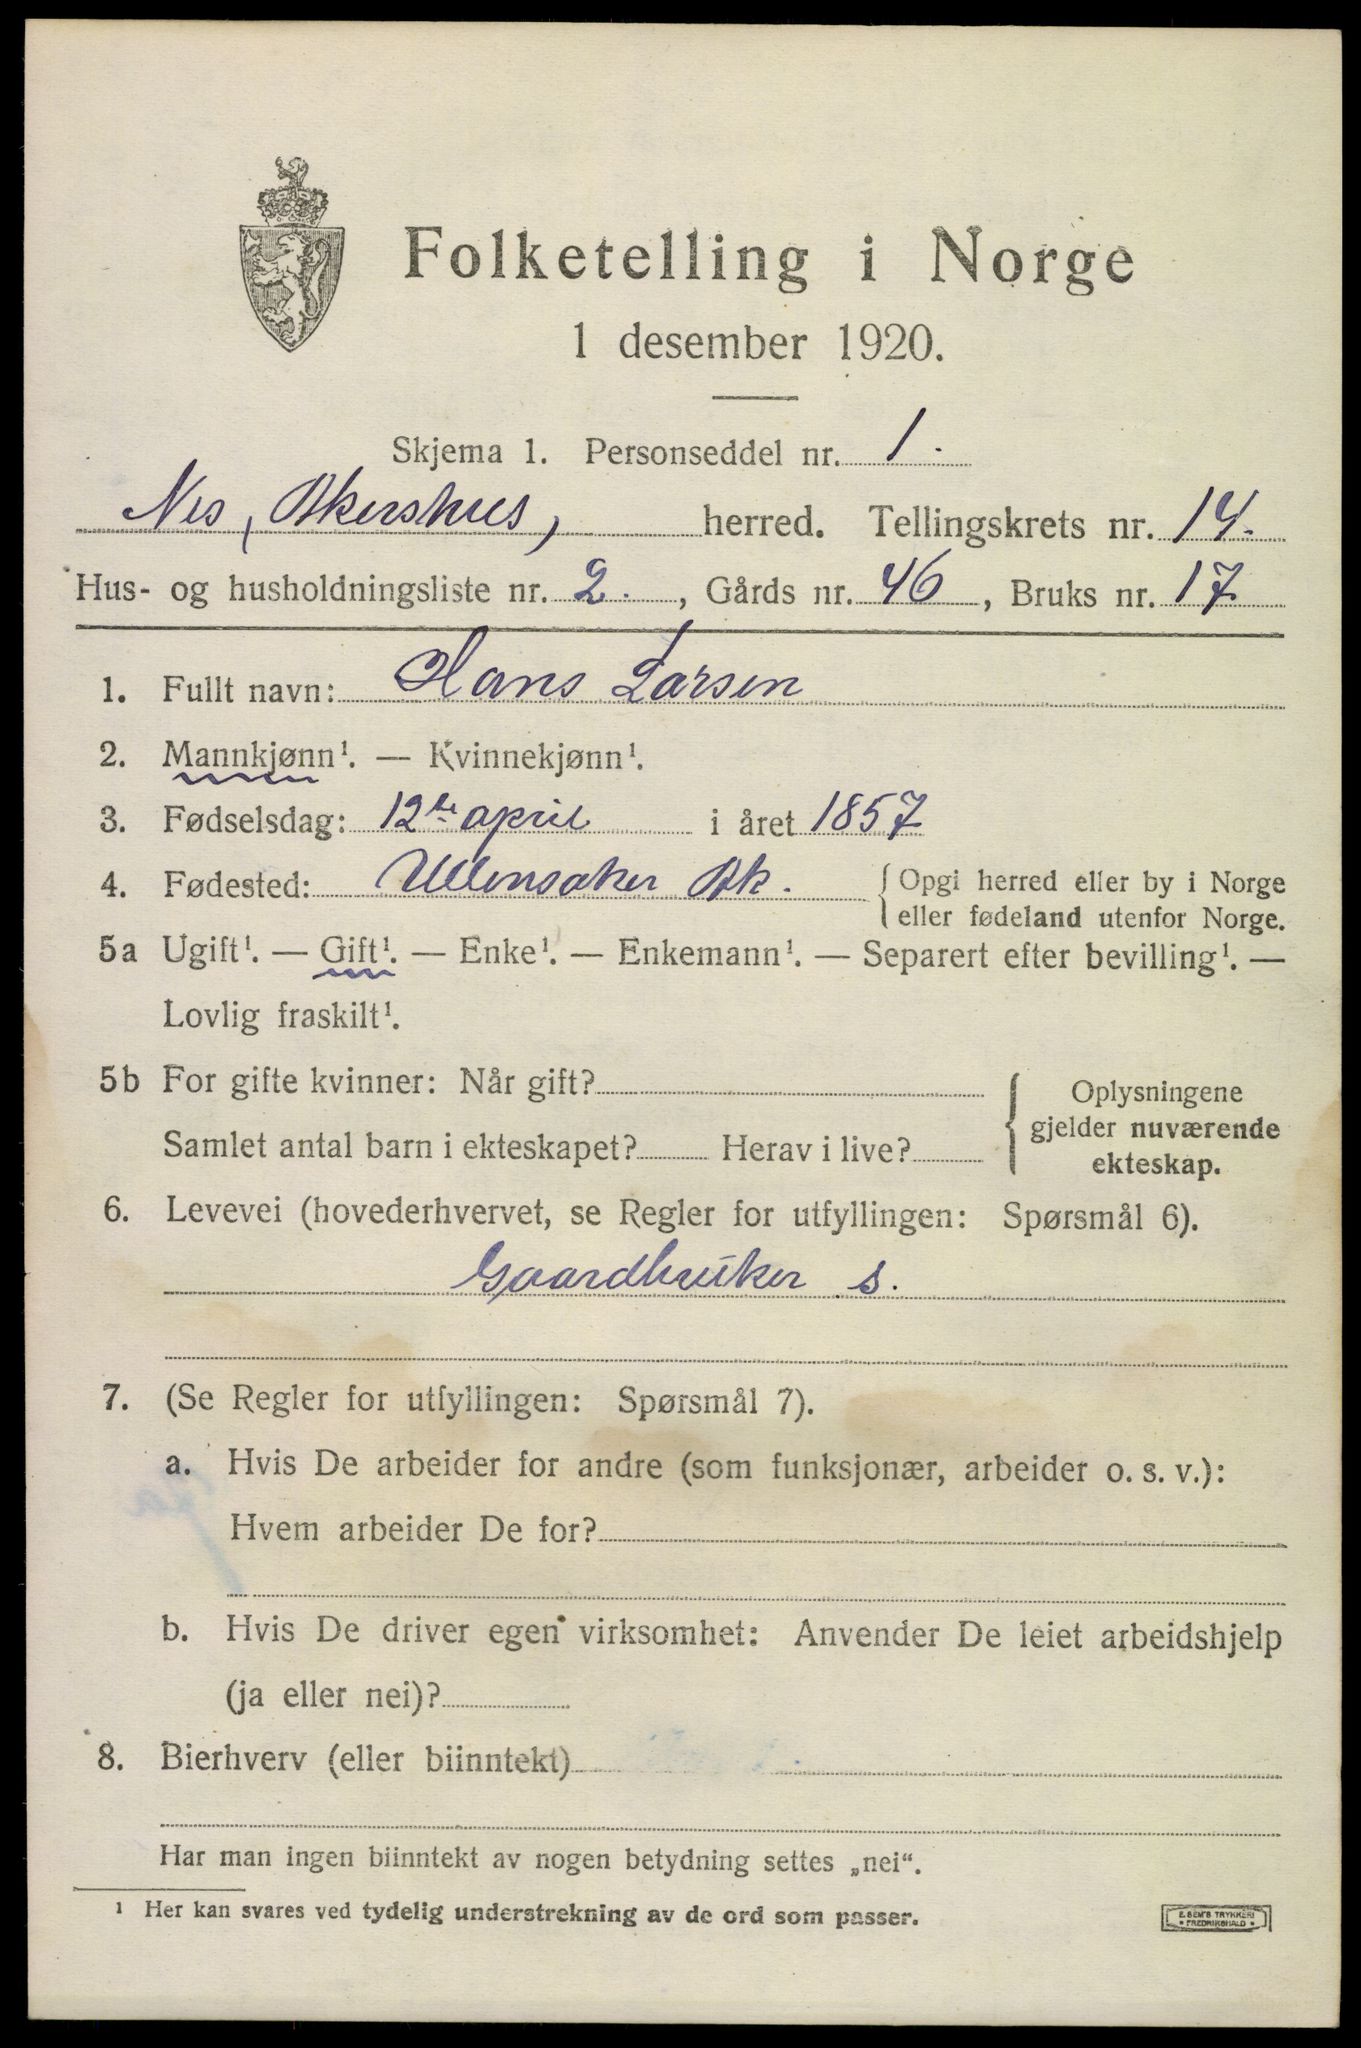 Folketelling i Norge
1 desember 1920.
Skjema 1. Personseddel nr. 1.
Nes, (Akershus) herred. Tellingskrets nr. 14.
Hus- og husholdningsliste nr. 2. , Gårds nr. 46 , Bruks nr. 17
1. Fullt navn: Hans Larsen
2. Mannkjønn¹. — Kvinnekjønn¹.
3. Fødselsdag: 12te april i året 1857
4. Fødested: Ullensaker Ak. { Opgi herred eller by i Norge
eller fødeland utenfor Norge.
5a Ugift¹. — Gift¹. — Enke¹. — Enkemann¹. — Separert efter bevilling¹. —
Lovlig fraskilt¹.
5b For gifte kvinner: Når gift? { Oplysningene
gjelder nuværende
Samlet antal barn i ekteskapet? Herav i live?
ekteskap.
6. Levevei (hovederhvervet, se Regler for utfyllingen: Spørsmål 6).
Gaardbruker s.
7. (Se Regler for utfyllingen: Spørsmål 7).
a. Hvis De arbeider for andre (som funksjonær, arbeider o. s. v.):
Hvem arbeider De for?
b. Hvis De driver egen virksomhet: Anvender De leiet arbeidshjelp
(ja eller nei)?
8. Bierhverv (eller biinntekt)
Har man ingen biinntekt av nogen betydning settes „nei“.
¹ Her kan svares ved tydelig understrekning av de ord som passer.
E. SEM'S TRYKKERI
• FREDRIKSHALD •